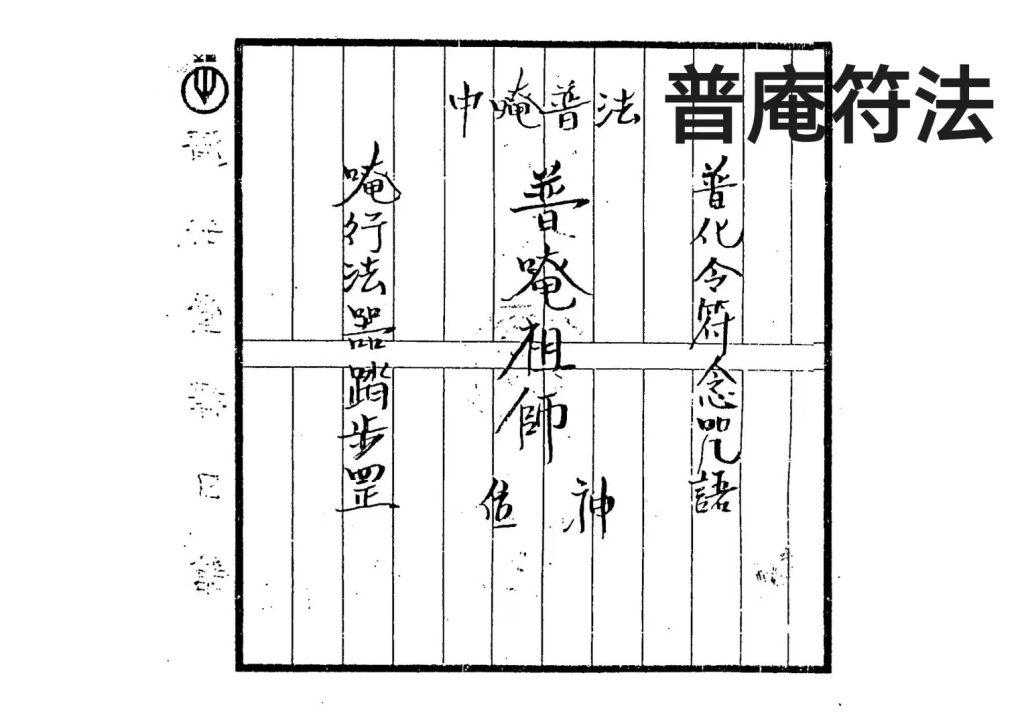 普庵符法
中唵普法
普化令符念咒語
普唵祖師
神位
唵行法器踏步罡